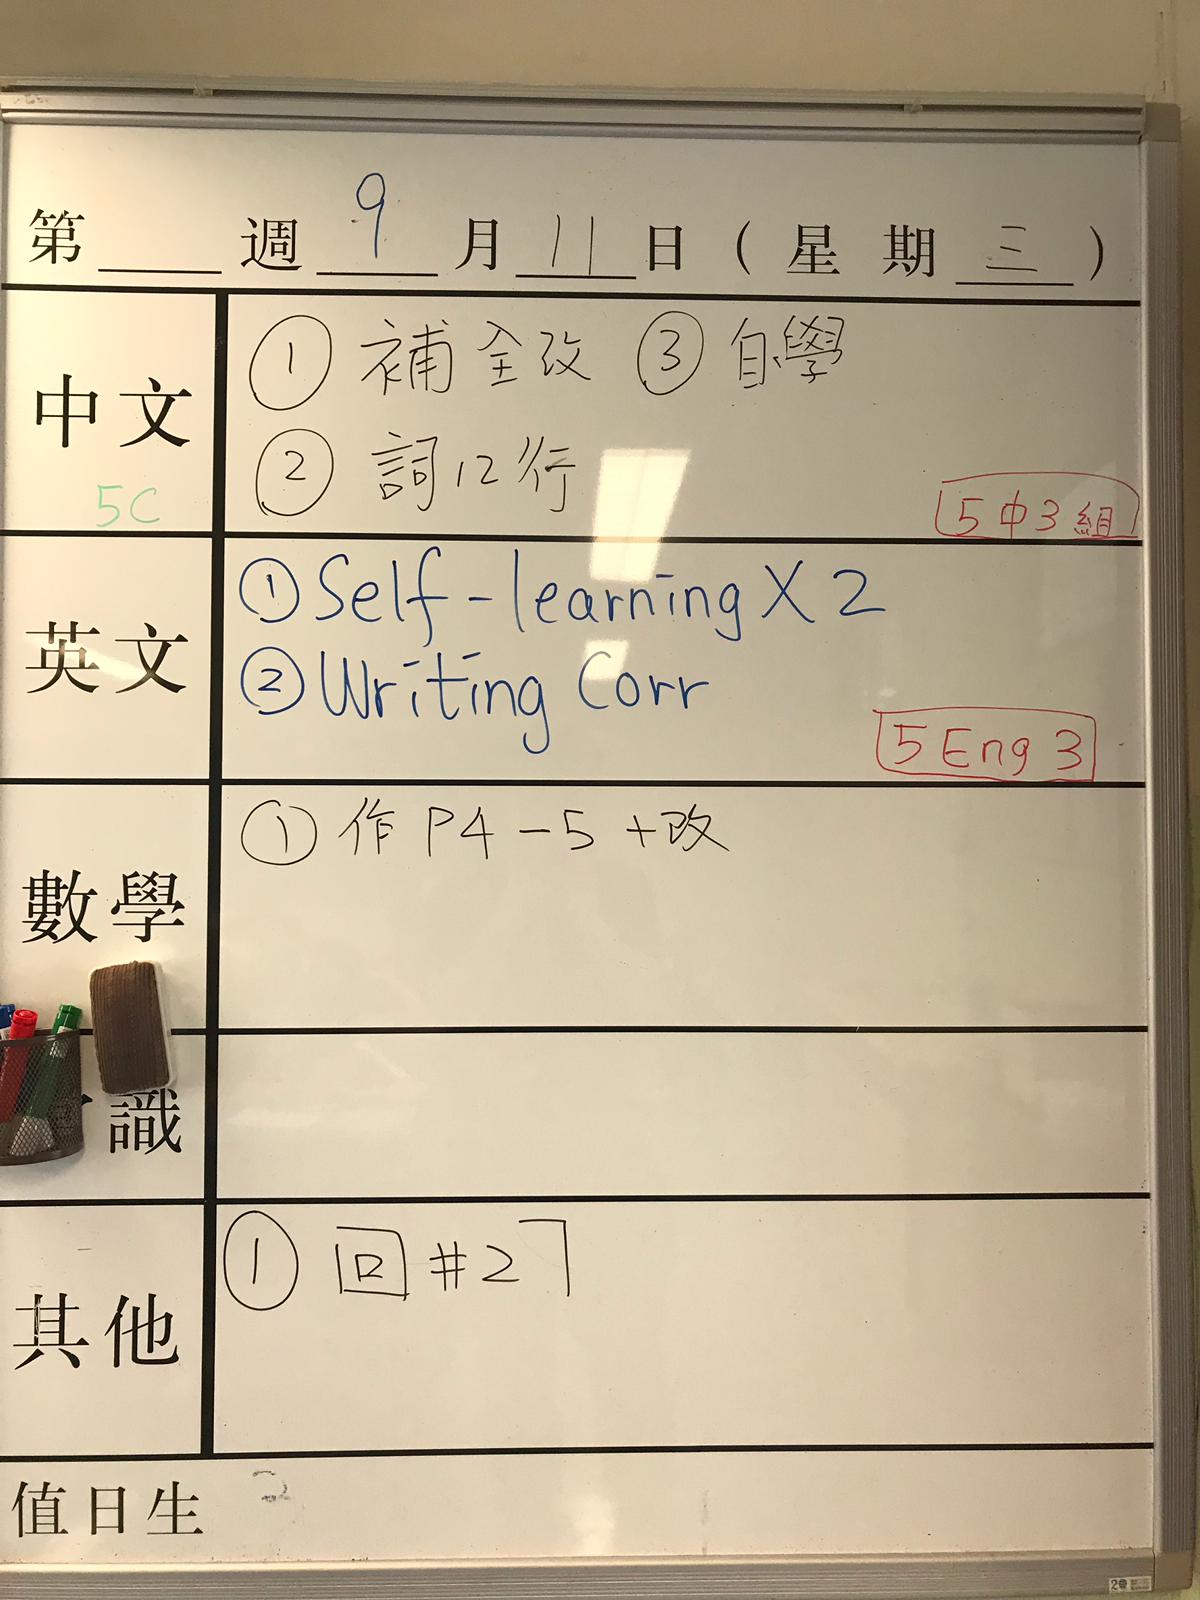 第 週 9 月 11 日 ( 星 期 三 )
中文
5C
① 補全改 ③ 自學
② 詞12行
5中3組
英文
① Self-learning X 2
② Writing Corr
5 Eng 3
數學
① 作 P4-5 +改
識
其他
① 回 #27
值日生